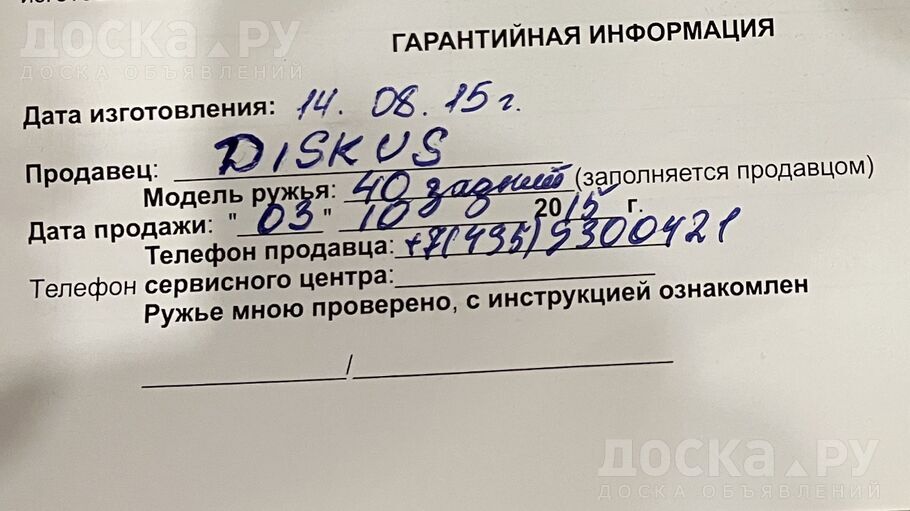 ДОСКА.РУ
ДОСКА ОБЪЯВЛЕНИЙ
ГАРАНТИЙНАЯ ИНФОРМАЦИЯ
Дата изготовления: 14. 08. 15 г.
Продавец: DISKUS
Модель ружья: 40 задний (заполняется продавцом)
Дата продажи: "03" 10 2015 г.
Телефон продавца: +7(495)9300421
Телефон сервисного центра:
Ружье мною проверено, с инструкцией ознакомлен
/
ДОСКА.РУ
ДОСКА ОБЪЯВЛЕНИЙ